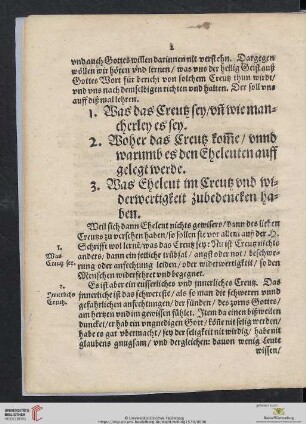 2
vnd auch Gottes willen darinnen nit verstehn. Dargegen
wöllen wir hören vnd lernen / was vns der heilig Geist auß
Gottes Wort für bericht von solchem Creutz thun wirdt /
vnd vns nach demselbigen richten vnd halten. Der soll vns
auff diß mal lehren.
1. Was das Creutz sey / vñ wie man-
cherley es sey.
2. Woher das Creutz kom̃e / vnnd
warumb es den Eheleuten auff
gelegt werde.
3. Was Eheleut im Creutz vnd wi-
derwertigkeit zubedencken ha-
ben.
Weil sich dann Eheleut nichts gewisers / dann des lieben
Creutzs zu versehen haben / so sollen sie vor allem auß der H.
Schrifft wol lernẽ / was das Creutz sey: Nũ ist Creutz nichts
anders / dann ein jetliche trübsal / angst oder not / beschwe-
rung oder anfechtung / leiden / oder widerwertigkeit / so den
Menschen widerfehret vnd begegnet.
1.
Was
Creutz sey.
Es ist aber ein eusserliches vnd jnnerliches Creutz. Das
jnnerliche ist das schwereste / als so man der schweren vnnd
gefährlichen anfechtungen / der sünden / des zorns Gottes /
am hertzen vnd im gewissen fühlet. Item da einen bißweilen
duncket / er hab ein vngnedigen Gott / köñe nit selig werden /
habe es gar vbermacht / sey der seligkeit nit wirdig / habe nit
glaubens gnugsam / vnd dergleichen: dauon wenig Leut
wissen /
2.
Innerliche
Creutz.
UNIVERSITÄTS-
BIBLIOTHEK
HEIDELBERG
© Universitätsbibliothek Heidelberg